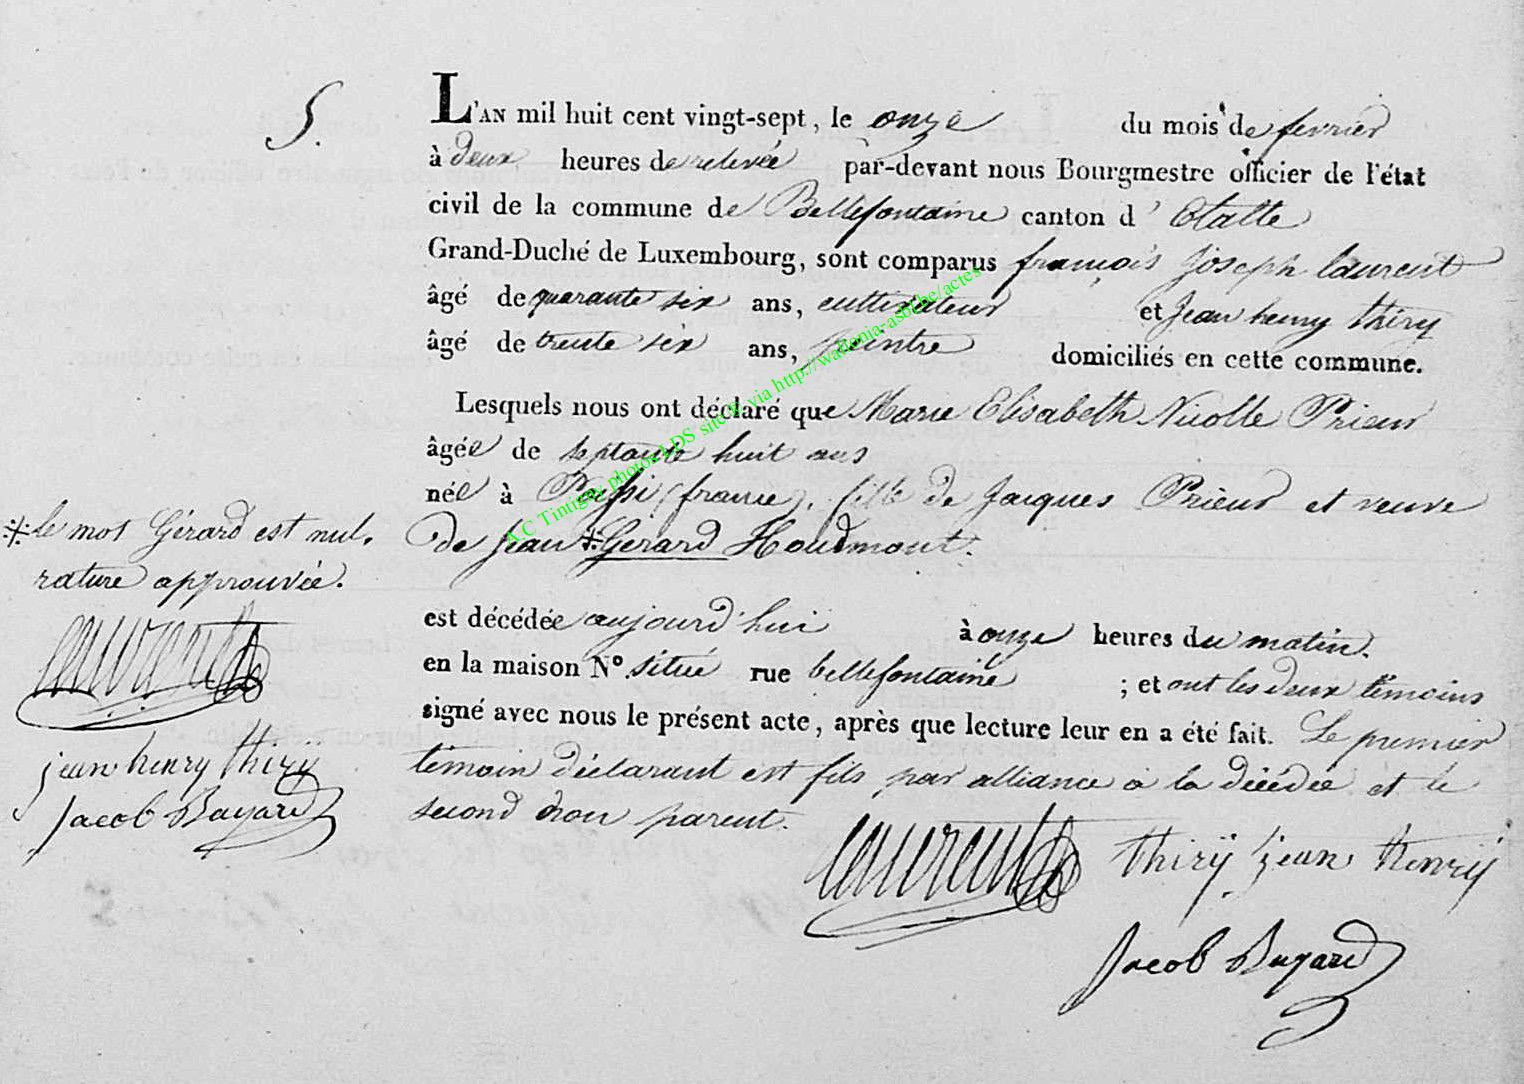 5.
L'AN mil huit cent vingt-sept, le onze du mois de fevrier
à deux heures de relevée par-devant nous Bourgmestre officier de l'état
civil de la commune de Bellefontaine canton d' Etalle
Grand-Duché de Luxembourg, sont comparus françois Joseph laurent
âgé de quarante six ans, cultivateur et Jean henry thiry
âgé de trente six ans, peintre domiciliés en cette commune.
Lesquels nous ont déclaré que Marie Elisabeth Nicolle Prieur
âgée de septante huit ans
née à (france), fille de Jacques Prieur et veuve
de Jean *Gérard Houdmont.
est décédée aujourd'hui à onze heures du matin.
en la maison N° située rue bellefontaine ; et ont les deux témoins
signé avec nous le présent acte, après que lecture leur en a été fait. Le premier
témoin déclarant est fils par alliance à la décédée et le
second non parent.
laurent thirÿ jean henrÿ
Jacob Bayard
* le mot Gérard est nul.
rature approuvée.
laurent
jean henry thirÿ
Jacob Bayard
A.C Tintigny photos LDS site via http://wallonia-asbl.be/actes